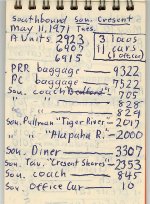 Southbound Sou. Crescent
May 11, 1971 Tues.
A Units 2923 3 locos
6907 11 cars
6915 (1 office)
PRR baggage — 9322
PC baggage — 7522
Sou. coach — 705
" " — 828
" " — 829
Sou. Pullman "Tiger River" — 2017
" " "Alapaha R." — 2000
Sou. Diner — 3307
Sou. Tav. "Crescent Shores" — 2353
Sou. coach — 845
Sou. Office Car — 10